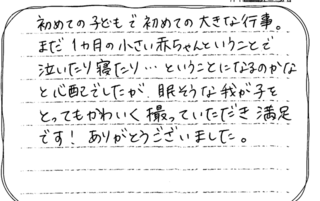 初めての子どもで初めての大きな行事。
まだ1カ月の小さい赤ちゃんということで
泣いたり寝たり…ということになるのかな
と心配でしたが、眠そうな我が子を
とってもかわいく撮っていただき満足
です！ありがとうございました。